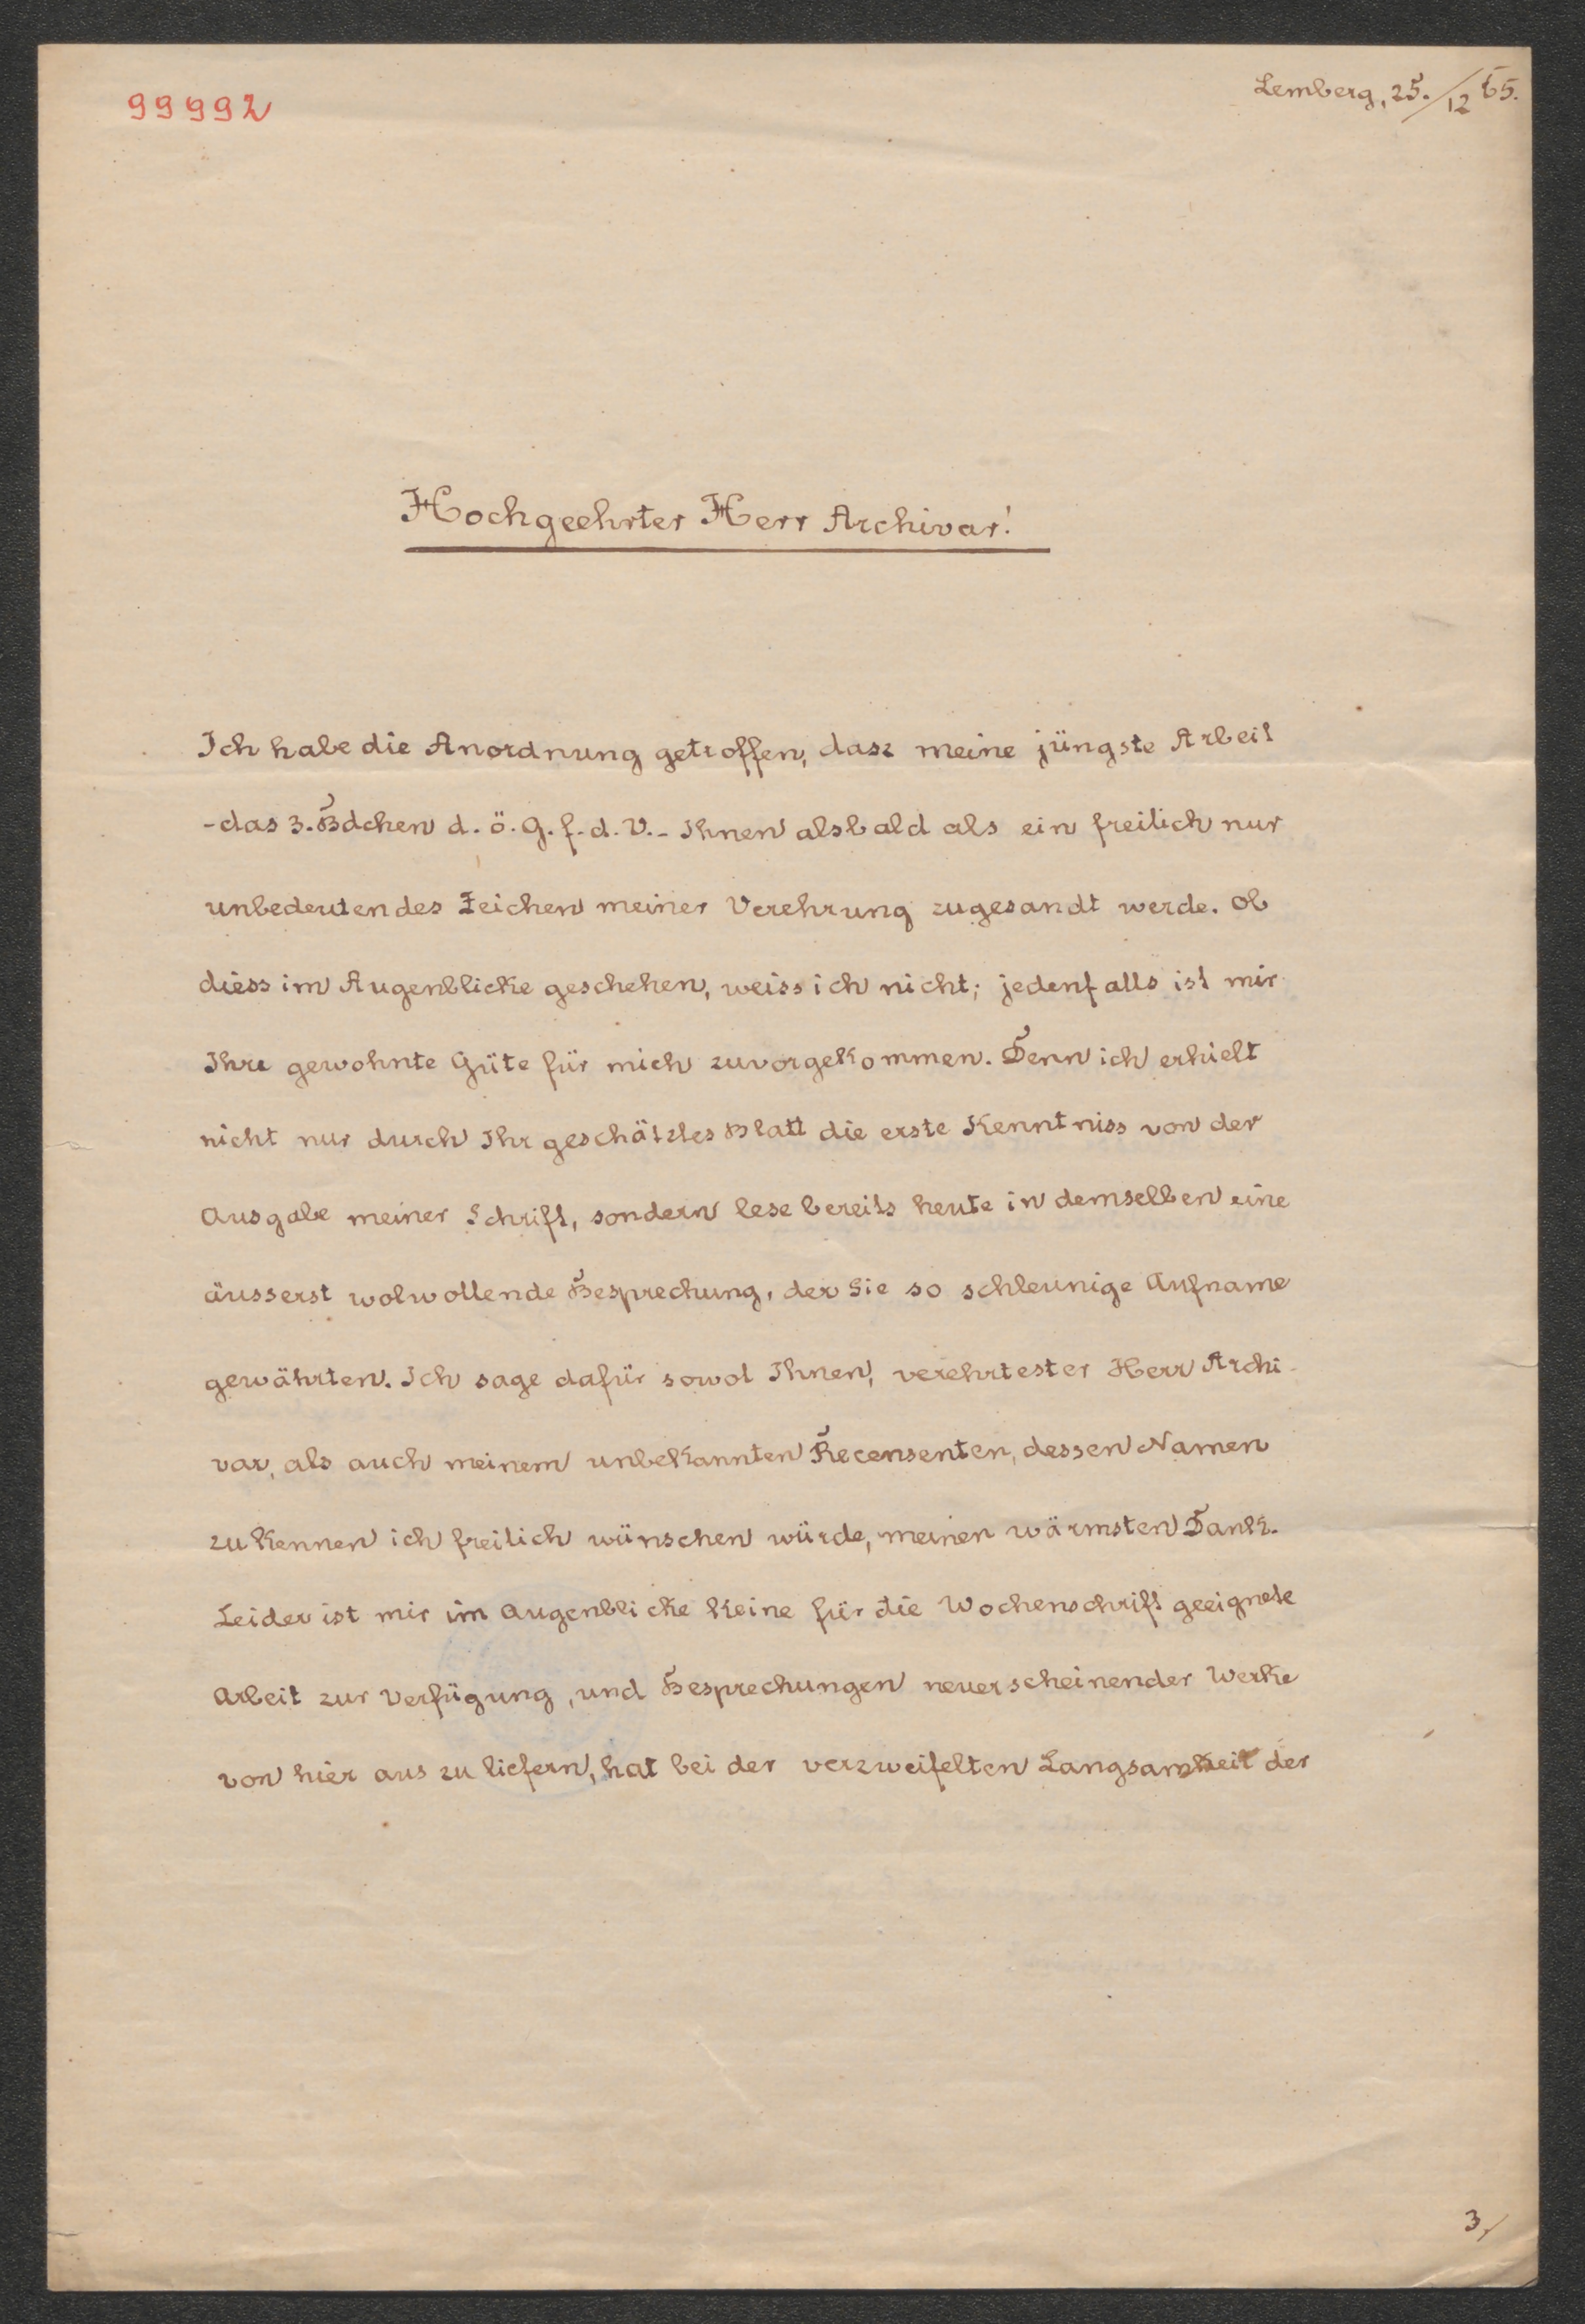 99992
Lemberg, 25./12 65.
Hochgeehrter Herr Archivar!
Ich habe die Anordnung getroffen, dasz meine jüngste Arbeit
-das 3. Bdchen d. ö. G. f. d. V.- Ihnen alsbald als ein freilich nur
unbedeutendes Zeichen meiner Verehrung zugesandt werde. Ob
diess im Augenblicke geschehen, weiss ich nicht; jedenfalls ist mir
Ihre gewohnte Güte für mich zuvorgekommen. Denn ich erhielt
nicht nur durch Ihr geschätztes Blatt die erste Kenntniss von der
Ausgabe meiner Schrift, sondern lese bereits heute in demselben eine
äusserst wolwollende Besprechung, der Sie so schleunige Aufname
gewährten. Ich sage dafür sowol Ihnen, verehrtester Herr Archi-
var, als auch meinem unbekannten Recensenten, dessen Namen
zu kennen ich freilich wünschen würde, meinen wärmsten Dank.
Leider ist mir im Augenblicke keine für die Wochenschrift geeignete
Arbeit zur Verfügung, und Besprechungen neuerscheinender Werke
von hier aus zu liefern, hat bei der verzweifelten Langsamkeit der
3/